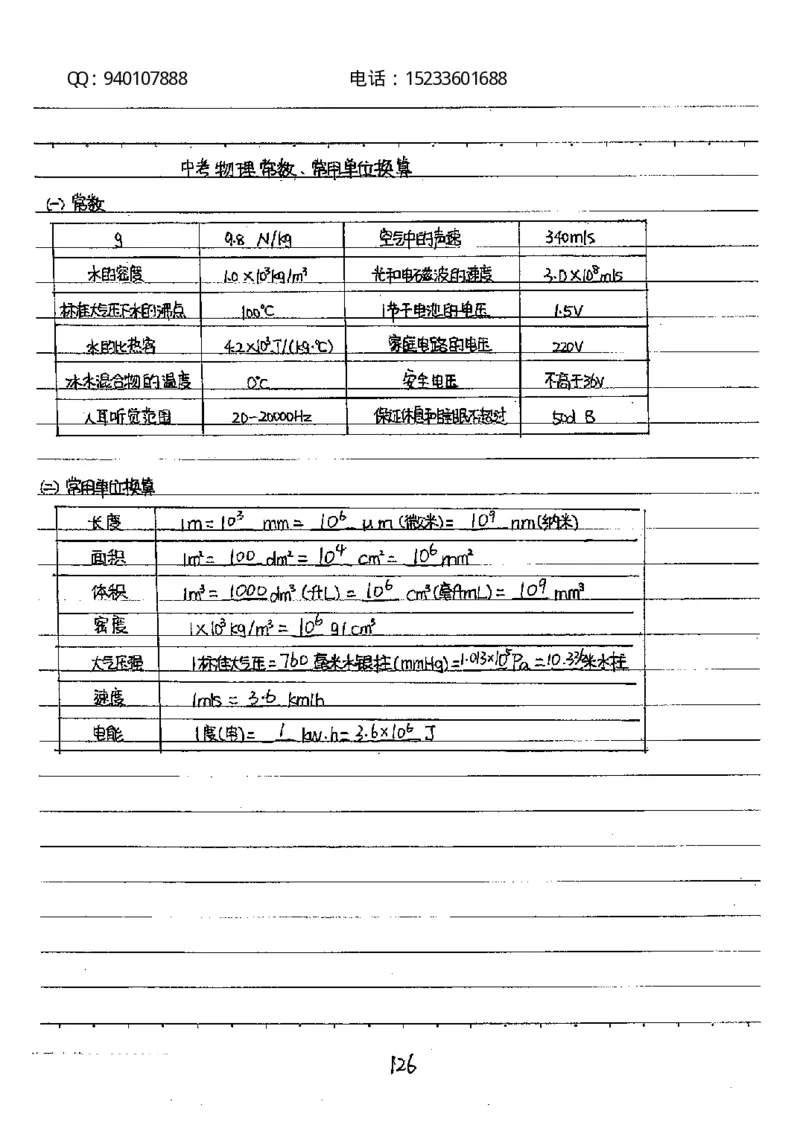 QQ：940107888 电话：15233601688
中考物理常数、常用单位换算
(一) 常数
g 9.8 N/kg 空气中的声速 340m/s
水的密度 1.0×10³kg/m³ 光和电磁波的速度 3.0×10⁸m/s
标准大气压下水的沸点 100℃ 1节干电池的电压 1.5V
水的比热容 4.2×10³J/(kg·℃) 家庭电路的电压 220V
冰水混合物的温度 0℃ 安全电压 不高于36V
人耳听觉范围 20-20000Hz 保证休息和睡眠不超过 50dB
(二) 常用单位换算
长度 1m=10³ mm=10⁶ μm(微米)=10⁹ nm(纳米)
面积 1m²=100 dm²=10⁴ cm²=10⁶ mm²
体积 1m³=1000 dm³(升L)=10⁶ cm³(毫升mL)=10⁹ mm³
密度 1×10³kg/m³=10⁶ g/cm³
大气压强 1标准大气压=760毫米水银柱(mmHg)=1.013×10⁵Pa=10.336米水柱
速度 1m/s=3.6 km/h
电能 1度(电)=1 kw·h=3.6×10⁶ J
126